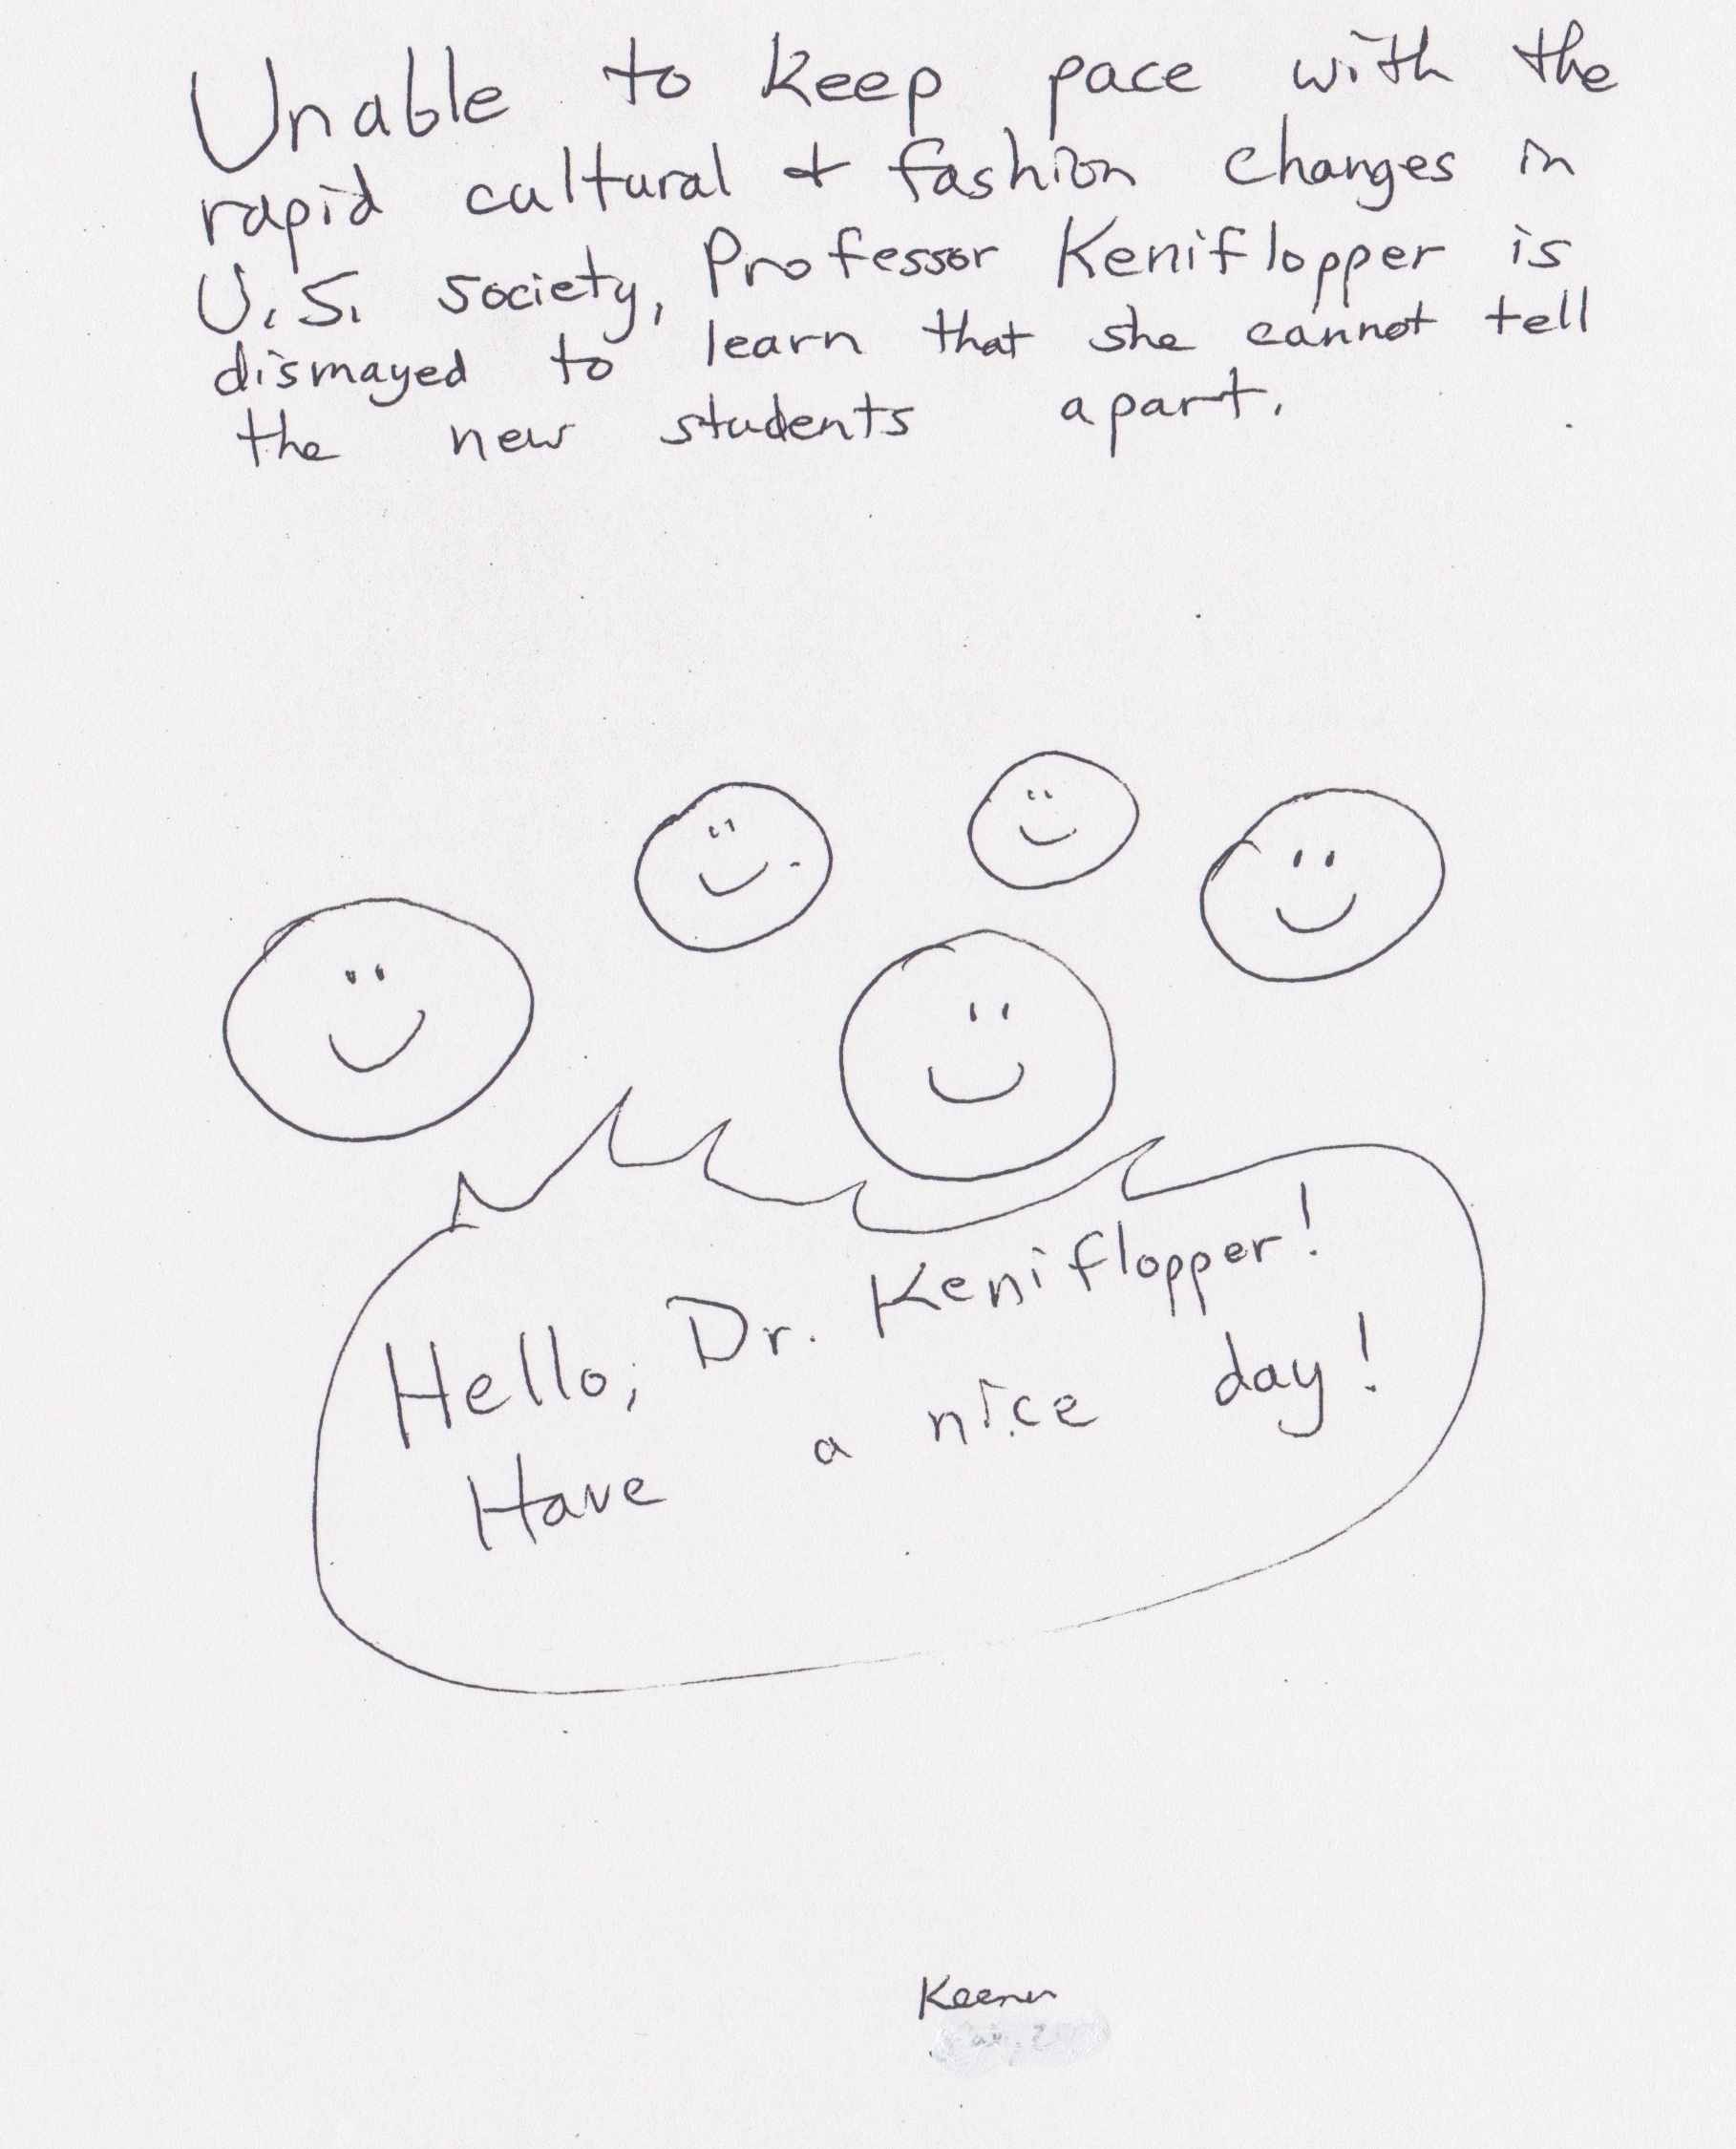 Unable to keep pace with the
rapid cultural & fashion changes in
U.S. society, Professor Keniflopper is
dismayed to learn that she cannot tell
the new students apart.
Hello, Dr. Keniflopper!
Have a nice day!
Keener